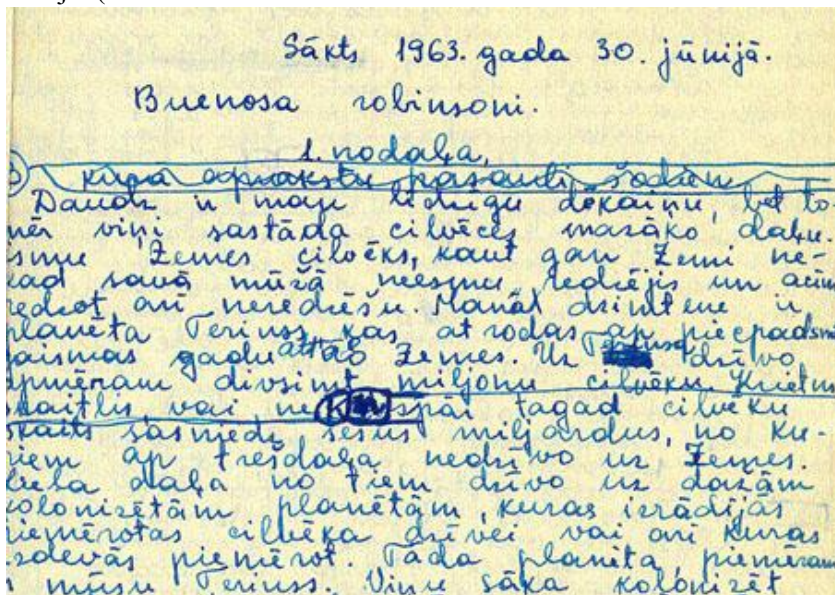 Sākts 1963. gada 30. jūnijā.
Buenosa robinsoni.
1. nodaļa,
kurā aprakstu pasauli šodien
Daudz ir manu līdzīgu dēkaiņu, bet to-
mēr viņi sastāda cilvēces mazāko daļu.
esmu Zemes cilvēks, kaut gan Zemi ne-
kad savā mūžā neesmu redzējis un acīm
redzot arī neredzēšu. Mana dzimtene ir
planēta Teriuss, kas atrodas ap piecpadsm
gaismas gadu attālo Zemes. Uz Teriusa dzīvo
apmēram divsimt miljonu cilvēku. Krietns
skaitlis, vai ne? tagad cilvēku
skaits sasniedz sešus miljardus, no ku-
riem ap trešdaļa nedzīvo uz Zemes.
Liela daļa no tiem dzīvo uz dažām
kolonizētām planētām, kuras izrādījās
piemērotas cilvēka dzīvei vai arī kuras
izdevās piemērot. Tāda planēta, piemēram
ir mūsu Teriuss. Viņu sāka kolonizēt